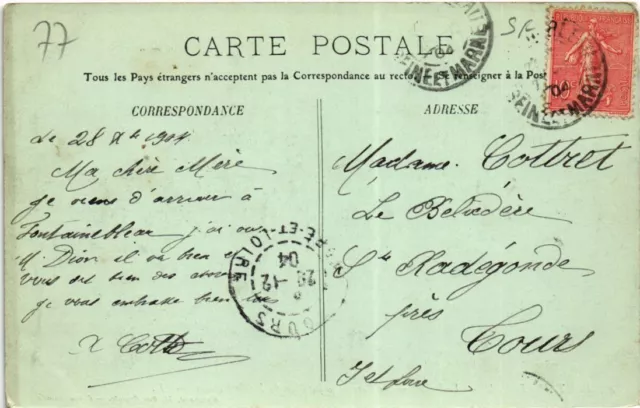 77
CARTE POSTALE
Tous les Pays étrangers n'acceptent pas la Correspondance au recto. Se renseigner à la Poste
CORRESPONDANCE
Le 28 Xbre 1904
Ma chère Mère
je viens d'arriver à
Fontainebleau j'ai vu
M. Dion il va bien et
vous dit bien des choses
je vous embrasse bien
ADRESSE
Madame Cottret
Le Belvédère
Ste Radégonde
près
Tours
I et Loire
SEINE-ET-MARNE
04
SEINE-ET-MARNE
04
TOURS
ET-LOIRE
12
04